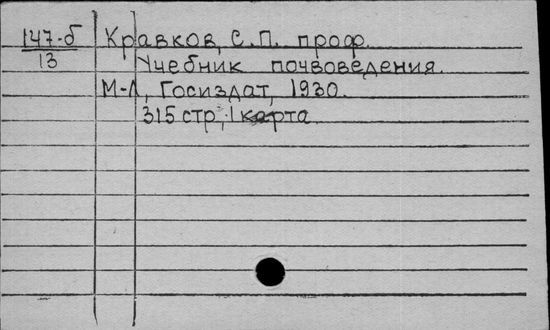 147-б Кравков, С.П. проф.
13 Учебник почвоведения.
М-Л, Госиздат, 1930.
315 стр., 1 карта.